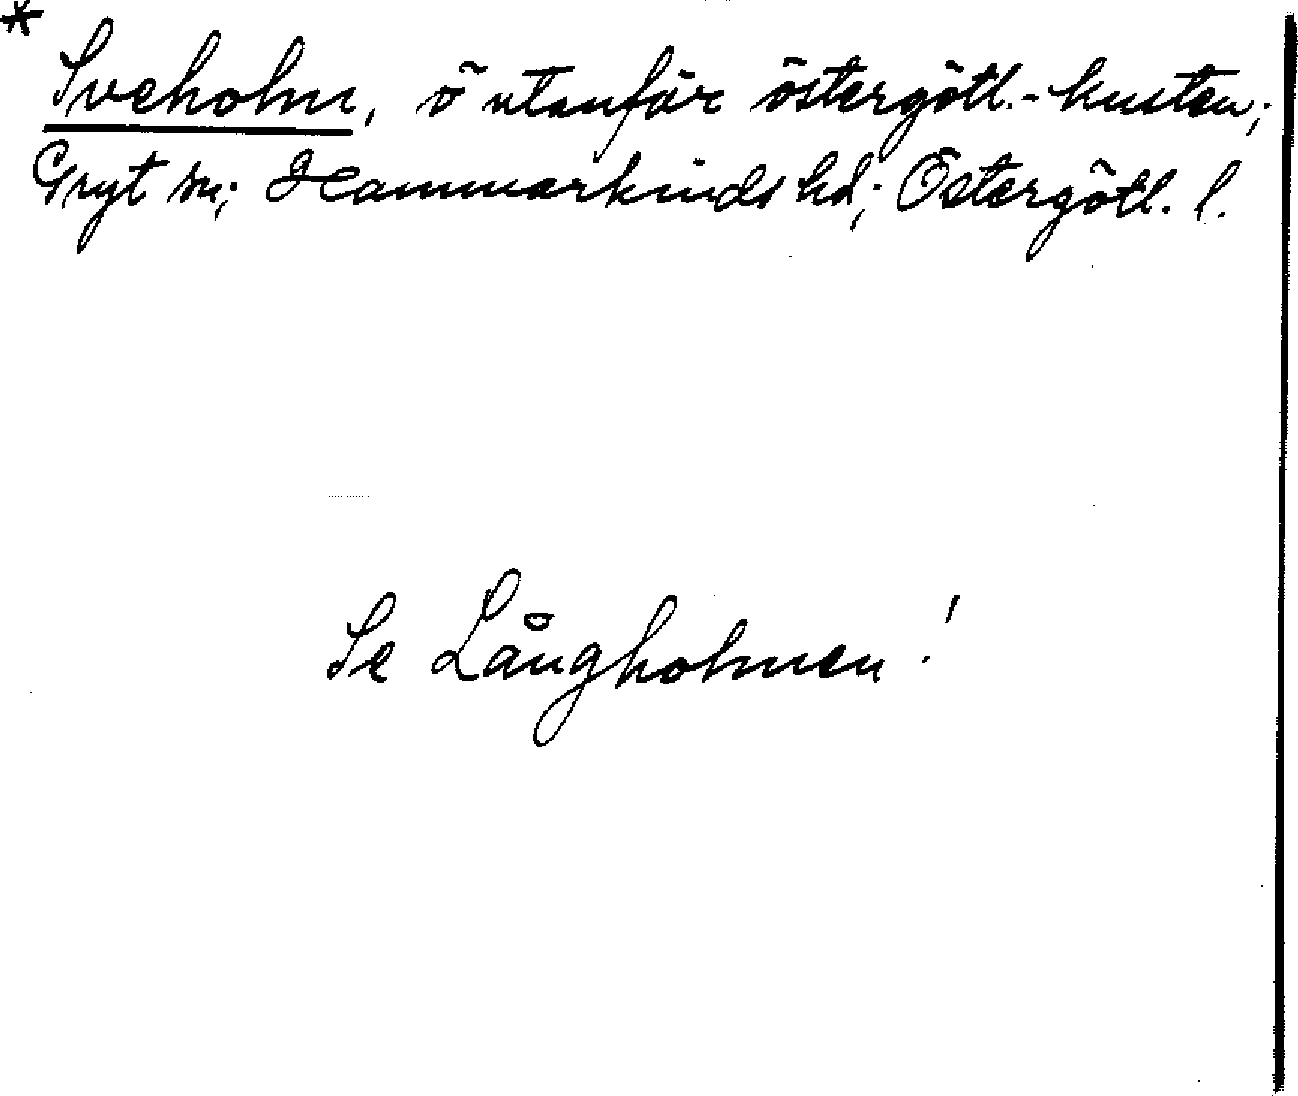 * Sveholm, ö utanför östergötl.-kusten;
Gryt sn; Hammarkinds hd; Östergötl. l.
Se Långholmen!